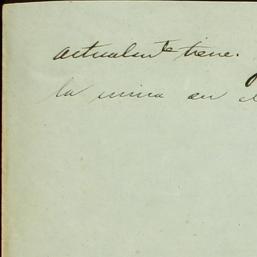 actualmte tiene.
la unica en el